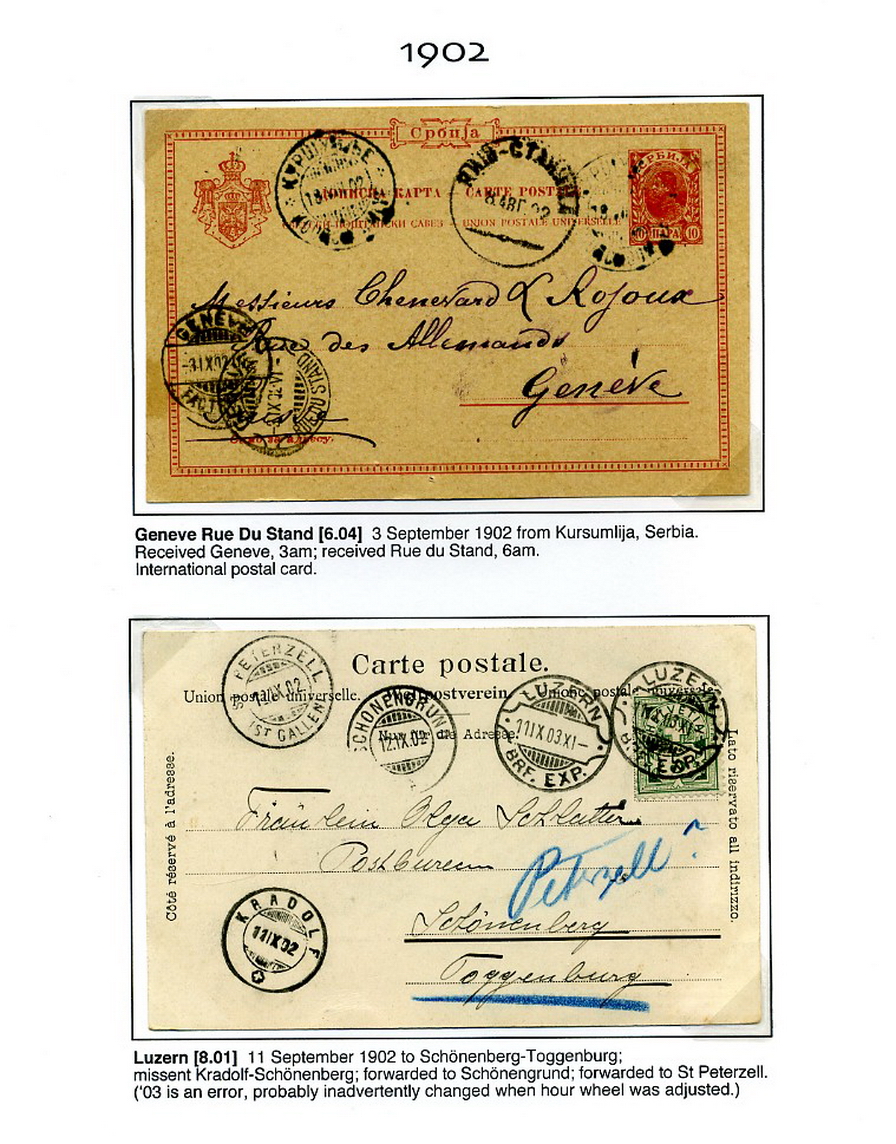 1902
Србија
КАРТА CARTE POSTALE
САВЕЗ - UNION POSTALE UNIVERSELLE
СРБИЈА
10 ПАРА 10
АВГ. 02
Messieurs Chenevard & Rojoux
Rue des Allemands
Genève
Suisse
GENÈVE
-3 IX 02
RUE DU STAND
Само за адресу.
Geneve Rue Du Stand [6.04] 3 September 1902 from Kursumlija, Serbia.
Received Geneve, 3am; received Rue du Stand, 6am.
International postal card.
PETERZELL
IX 02
(ST GALLEN)
Carte postale.
Union postale universelle. Weltpostverein. Unione postale universale.
Nur für die Adresse.
SCHÖNENGRUND
12.IX.02
LUZERN
11 IX 03 XI-
BRF. EXP.
LUZERN
BRF. EXP.
Côté réservé à l'adresse.
Lato riservato all indirizzo.
Fräulein Olga Schlatter
Postbureau
Peterzell?
Schönenberg
Toggenburg
KRADOLF
11 IX 02
Luzern [8.01] 11 September 1902 to Schönenberg-Toggenburg;
missent Kradolf-Schönenberg; forwarded to Schönengrund; forwarded to St Peterzell.
('03 is an error, probably inadvertently changed when hour wheel was adjusted.)